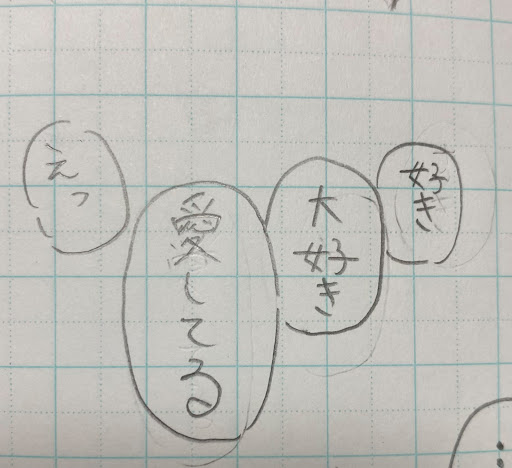 好き
大好き
愛してる
えっ